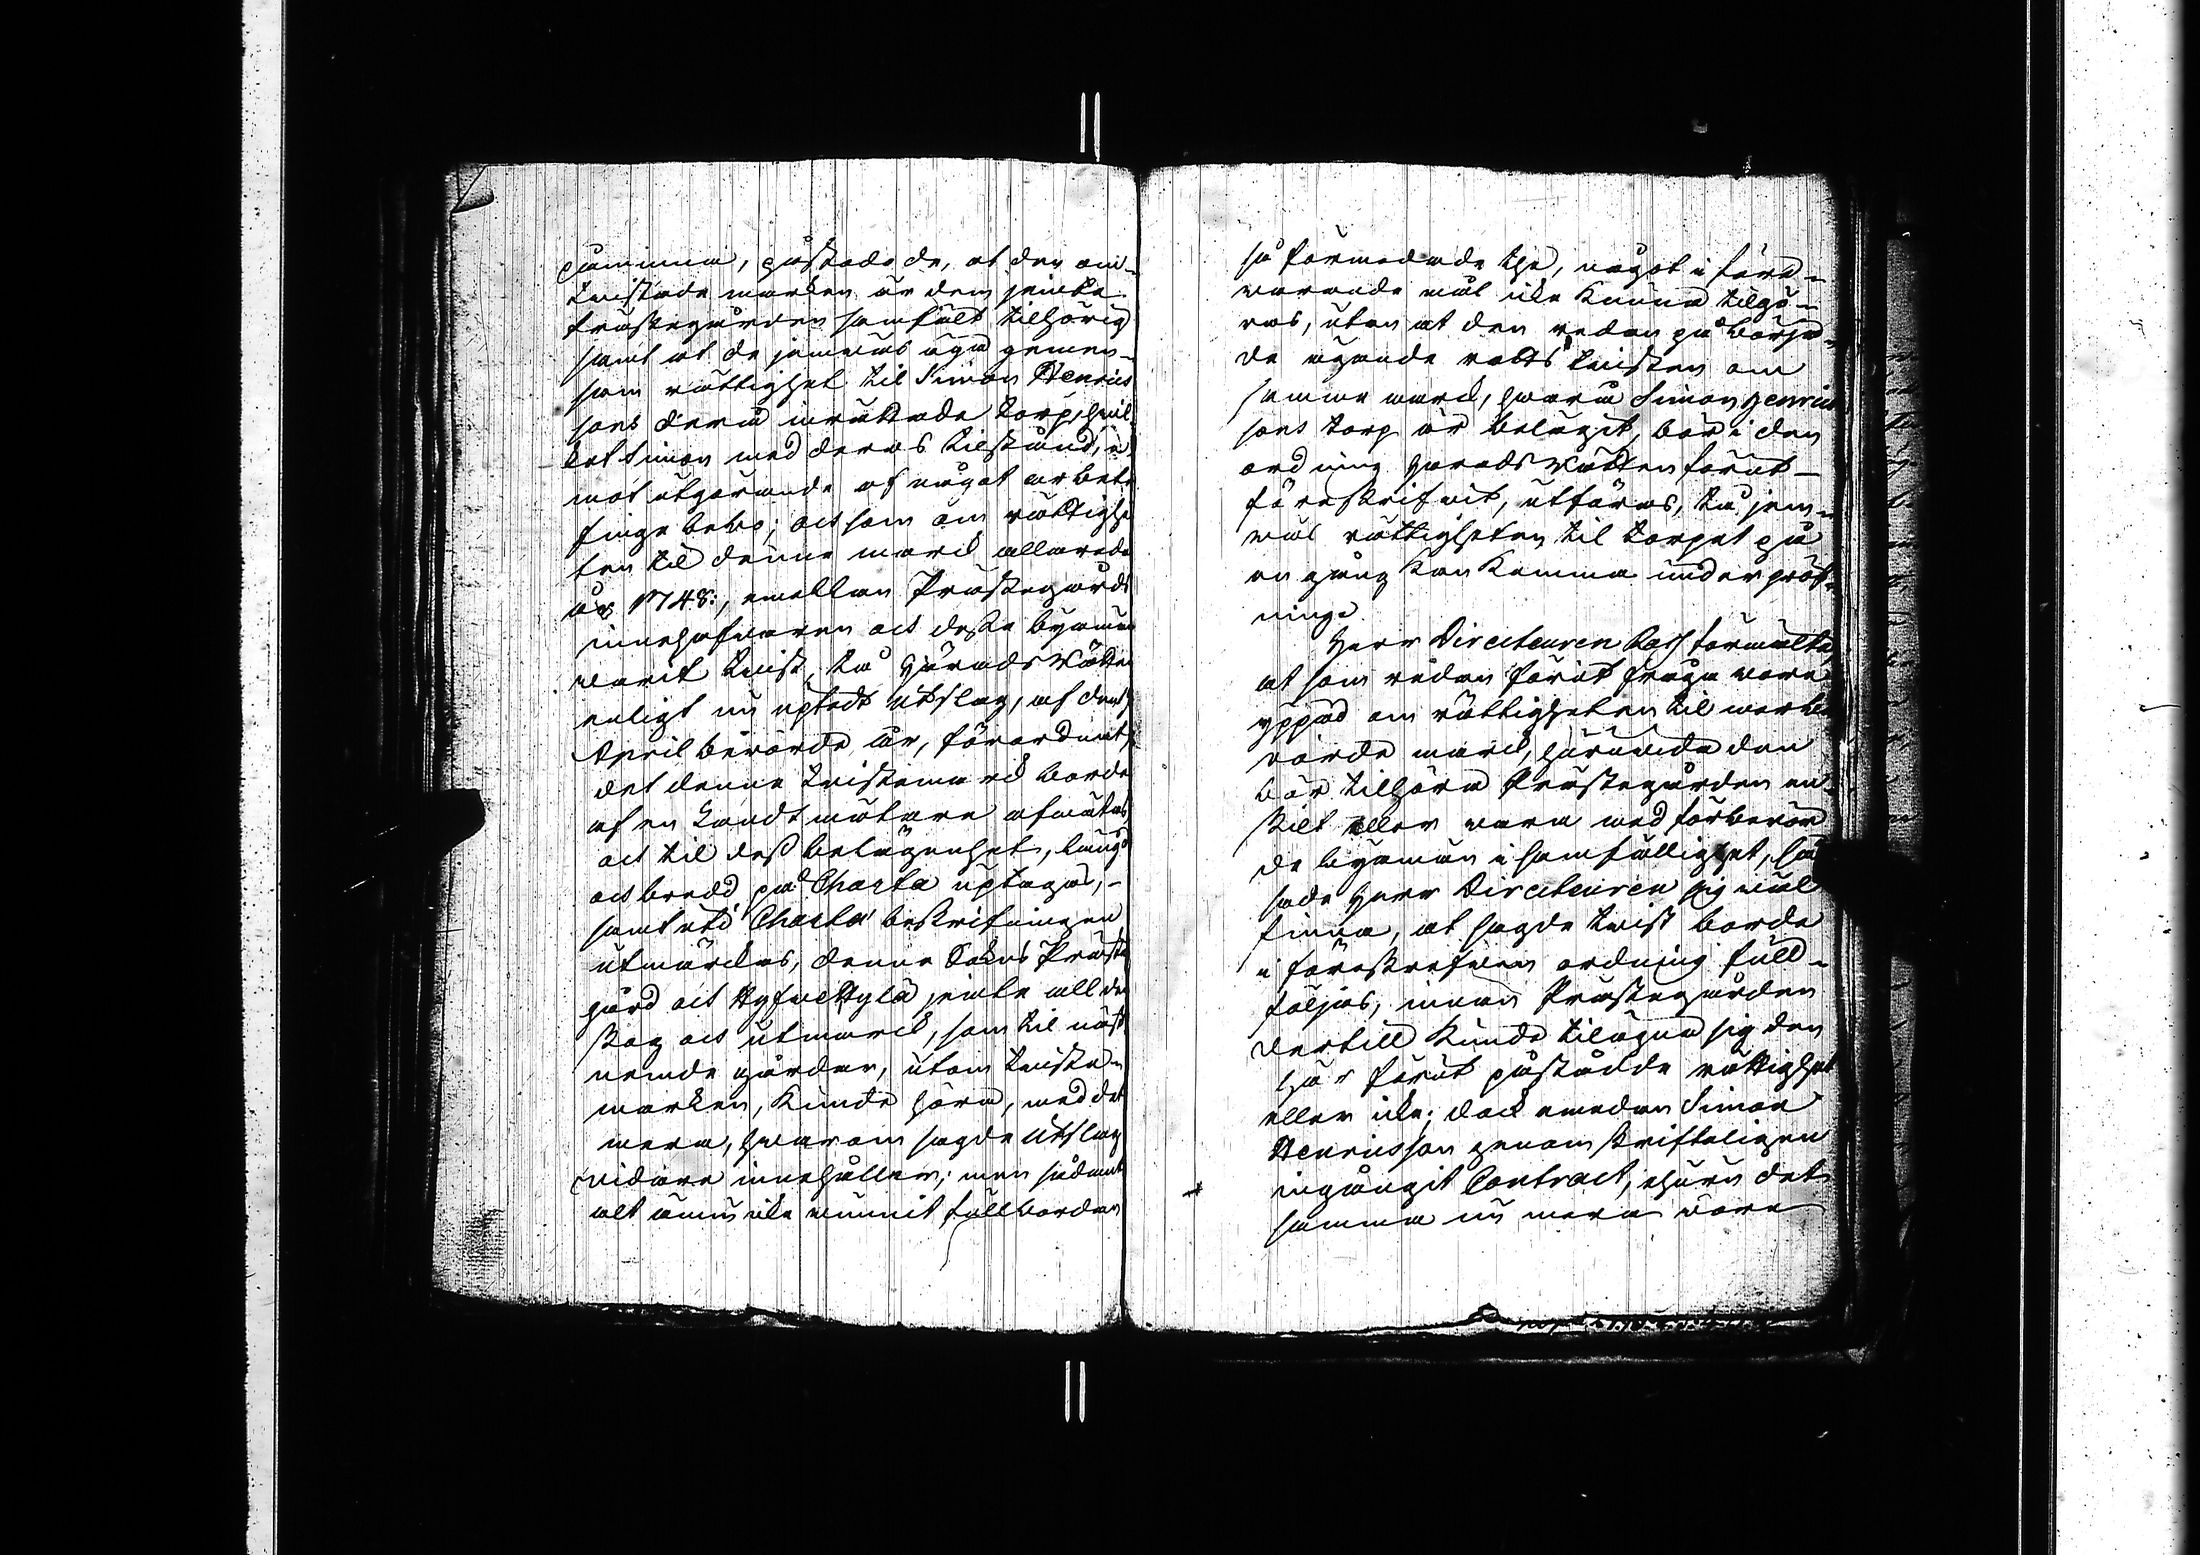 samma, påstodo de, at den om-
twistade marken är dem jemte
Prästegården samfält tilhörig
samt at de jemwäl äga gemen-
sam rättighet til Simon Henrics
sons derå inrättade torp, hwil
ket Simon med deras tilstånd, e
mot utgörande af något arbete
finge bebo; och som om rättighe
ten til denne marck allaredo
år 1748:, emellan Prästegårds
innehafwaren och desse byamän
warit twist, tå HäradsRätten
enligt nu uptedt utslag, af den
April berörde år, förordnat,
det denne twistemarck borde
af en Landtmätare afmätas,
och til dess belägenhet, längd
och bredd på Charta uptagas,-
samt uti Charta beskrifningen
utmärckas, denne Sokns Präste
gård och Nyfwettylä jemte all den
skog och utmarck, som til näst
nemde gårdar, utom twiste-
marken, kunde höra, med det
mera, hwarom sagde Utslag
widare innehåller; men sådant
alt ännu icke wunnit fullbordan
så förmodade the, något i före-
warande mål icke kunna tilgö-
ras, utan at den redan påbörja-
de ägande rätts twisten om
samma marck, hwarå Simon Henrics
sons torp är belägit, bör i den
ordning HäradsRätten förut-
föreskrifwit, utföras, tå jem-
wäl rättigheten til torpet på
en gång kan komma under pröf-
ning.
Herr Directeuren Carl förmälte,
at som redan förut fråga wore
yppad om rättigheten til merbe
rörde marck, huruwida den
bör tilhöra Prästegården en-
skilt eller wara med förberör
de byamän i samfällighet, så
sade Herr Directeuren sig wäl
finna, at sagde twist borde
i föreskrefwen ordning full-
följas, innan Prästegården
dertill kunde tilägna sig den
här förut påstådde rättighet
eller icke; dock emedan Simon
Henricsson genom skrifteligen
ingångit Contract, ehuru det
samma nu mera wore